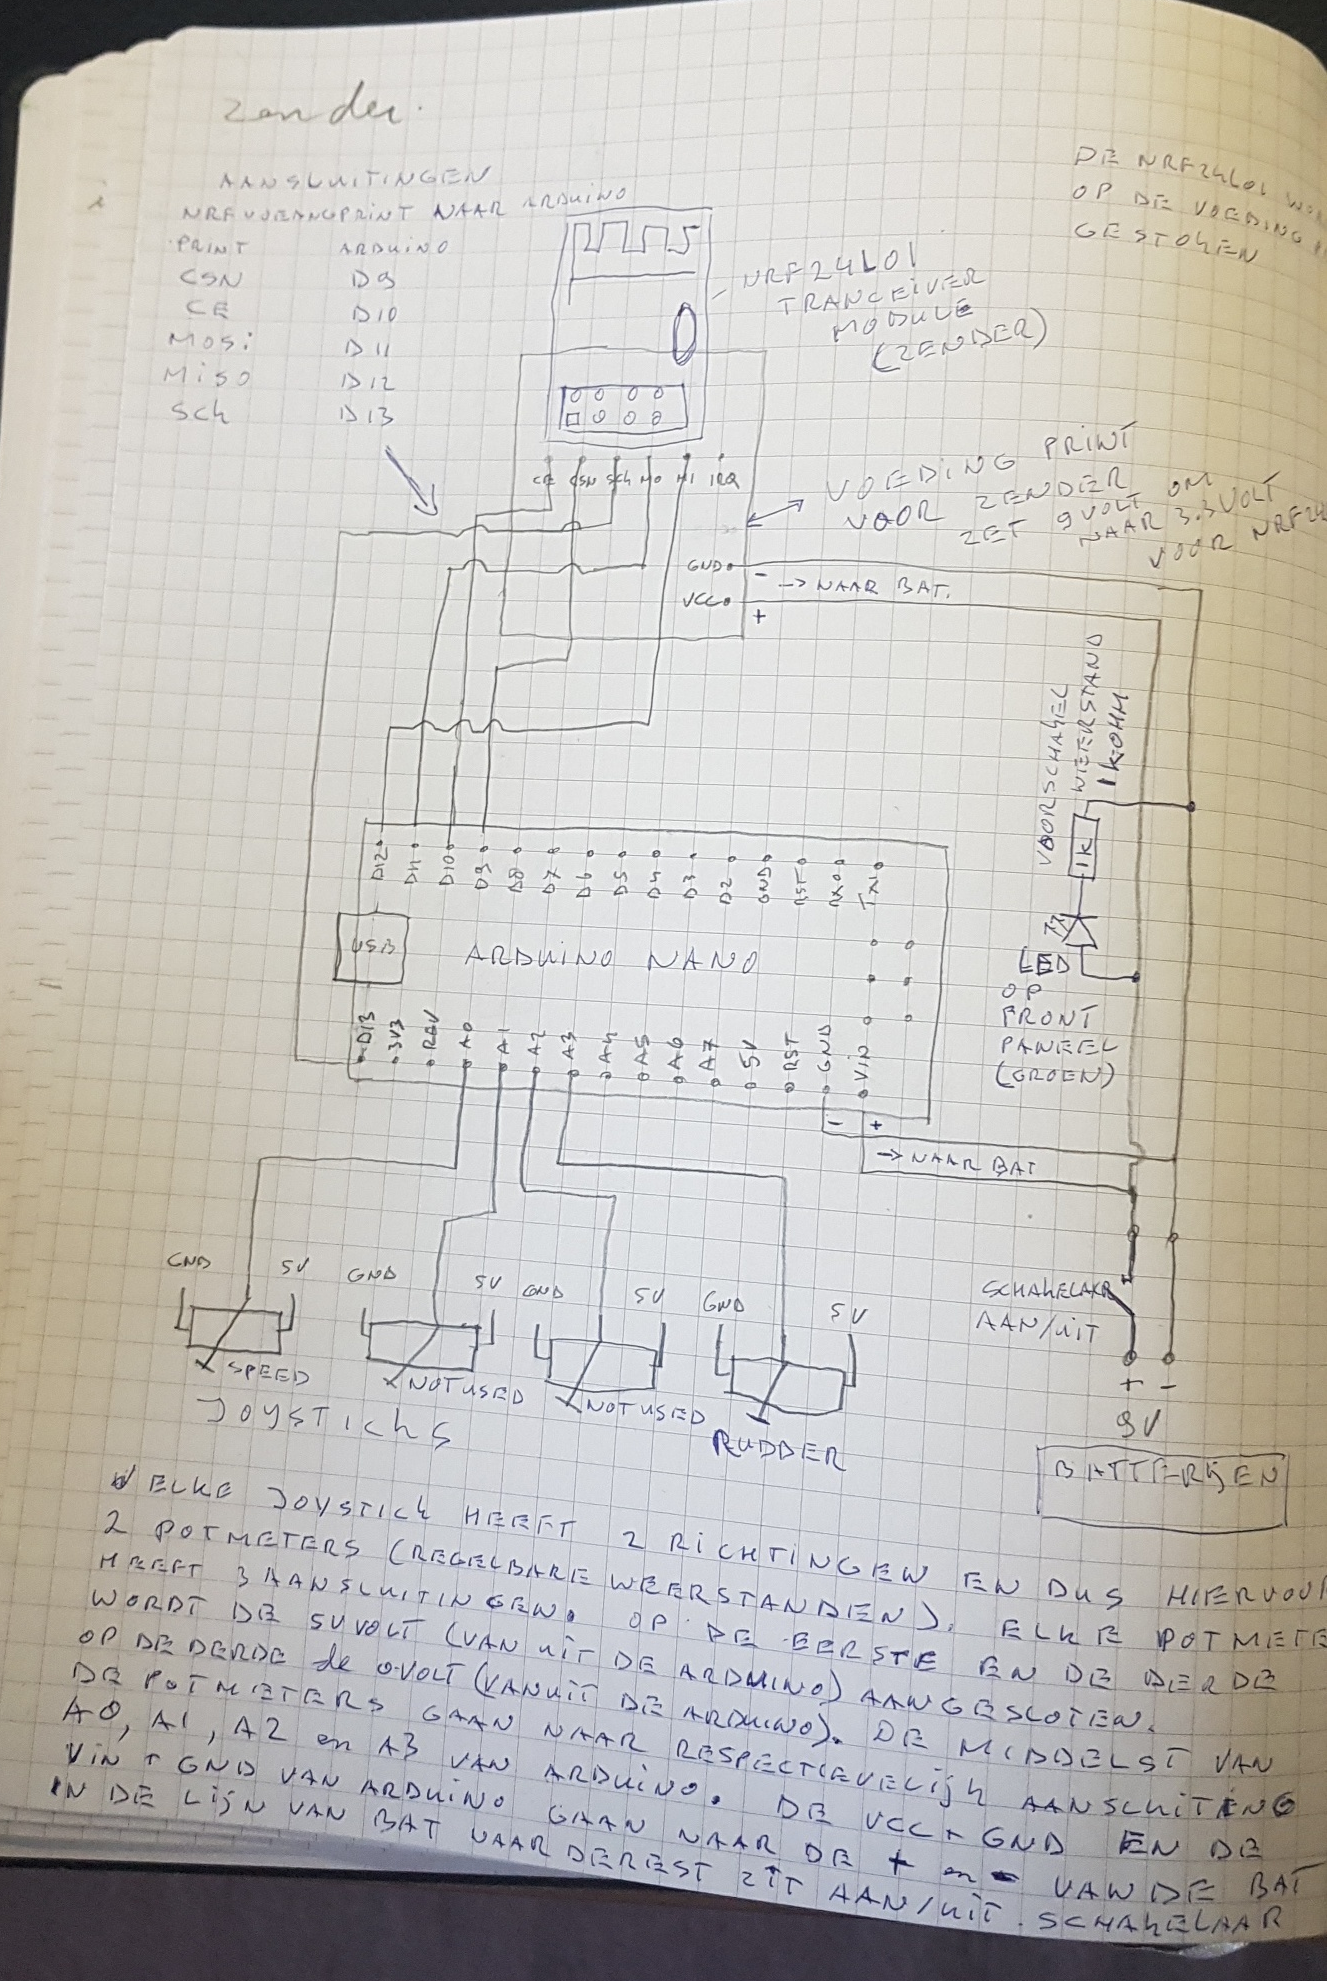 zender.
AANSLUITINGEN
NRF VOEDINGPRINT NAAR ARDUINO
PRINT ARDUINO
CSN D9
CE D10
MOSi D11
MiSO D12
SCK D13
DE NRF24L01
OP DE VOEDING
GESTOKEN
NRF24L01
TRANCEIVER
MODULE
(ZENDER)
CE CSN SCK MO MI IRQ
VOEDING PRINT
VOOR ZENDER
ZET 9VOLT OM
NAAR 3.3VOLT
VOOR NRF24
GND - -> NAAR BAT.
VCC +
VOORSCHAKEL
WEERSTAND
1 KOHM
1K
D12 D11 D10 D9 D8 D7 D6 D5 D4 D3 D2 GND RST RX0 TX1
USB
ARDUINO NANO
LED
OP
FRONT
PANEEL
(GROEN)
D13 3V3 A0 A1 A2 A3 A4 A5 A6 A7 5V RST GND Vin
- +
-> NAAR BAT
GND 5V GND 5V GND 5V GND 5V
SCHAKELAAR
AAN/UIT
SPEED NOT USED NOT USED RUDDER
JOYSTICKS
+ -
9V
BATTERIJEN
ELKE JOYSTICK HEEFT 2 RICHTINGEN EN DUS HIERVOOR
2 POTMETERS (REGELBARE WEERSTANDEN). ELKE POTMETE
HEEFT 3 AANSLUITINGEN. OP DE EERSTE EN DE DERDE
WORDT DE 5V VOLT (VAN UIT DE ARDUINO) AANGESLOTEN.
OP DE DERDE de 0-VOLT (VANUIT DE ARDUINO). DE MIDDELST VAN
DE POTMETERS GAAN NAAR RESPECTIEVELIJK AANSLUITING
A0, A1, A2 en A3 VAN ARDUINO. DE VCC + GND EN DE
Vin + GND VAN ARDUINO GAAN NAAR DE + en - VAN DE BAT
IN DE LIJN VAN BAT NAAR DE REST ZIT AAN/UIT SCHAKELAAR